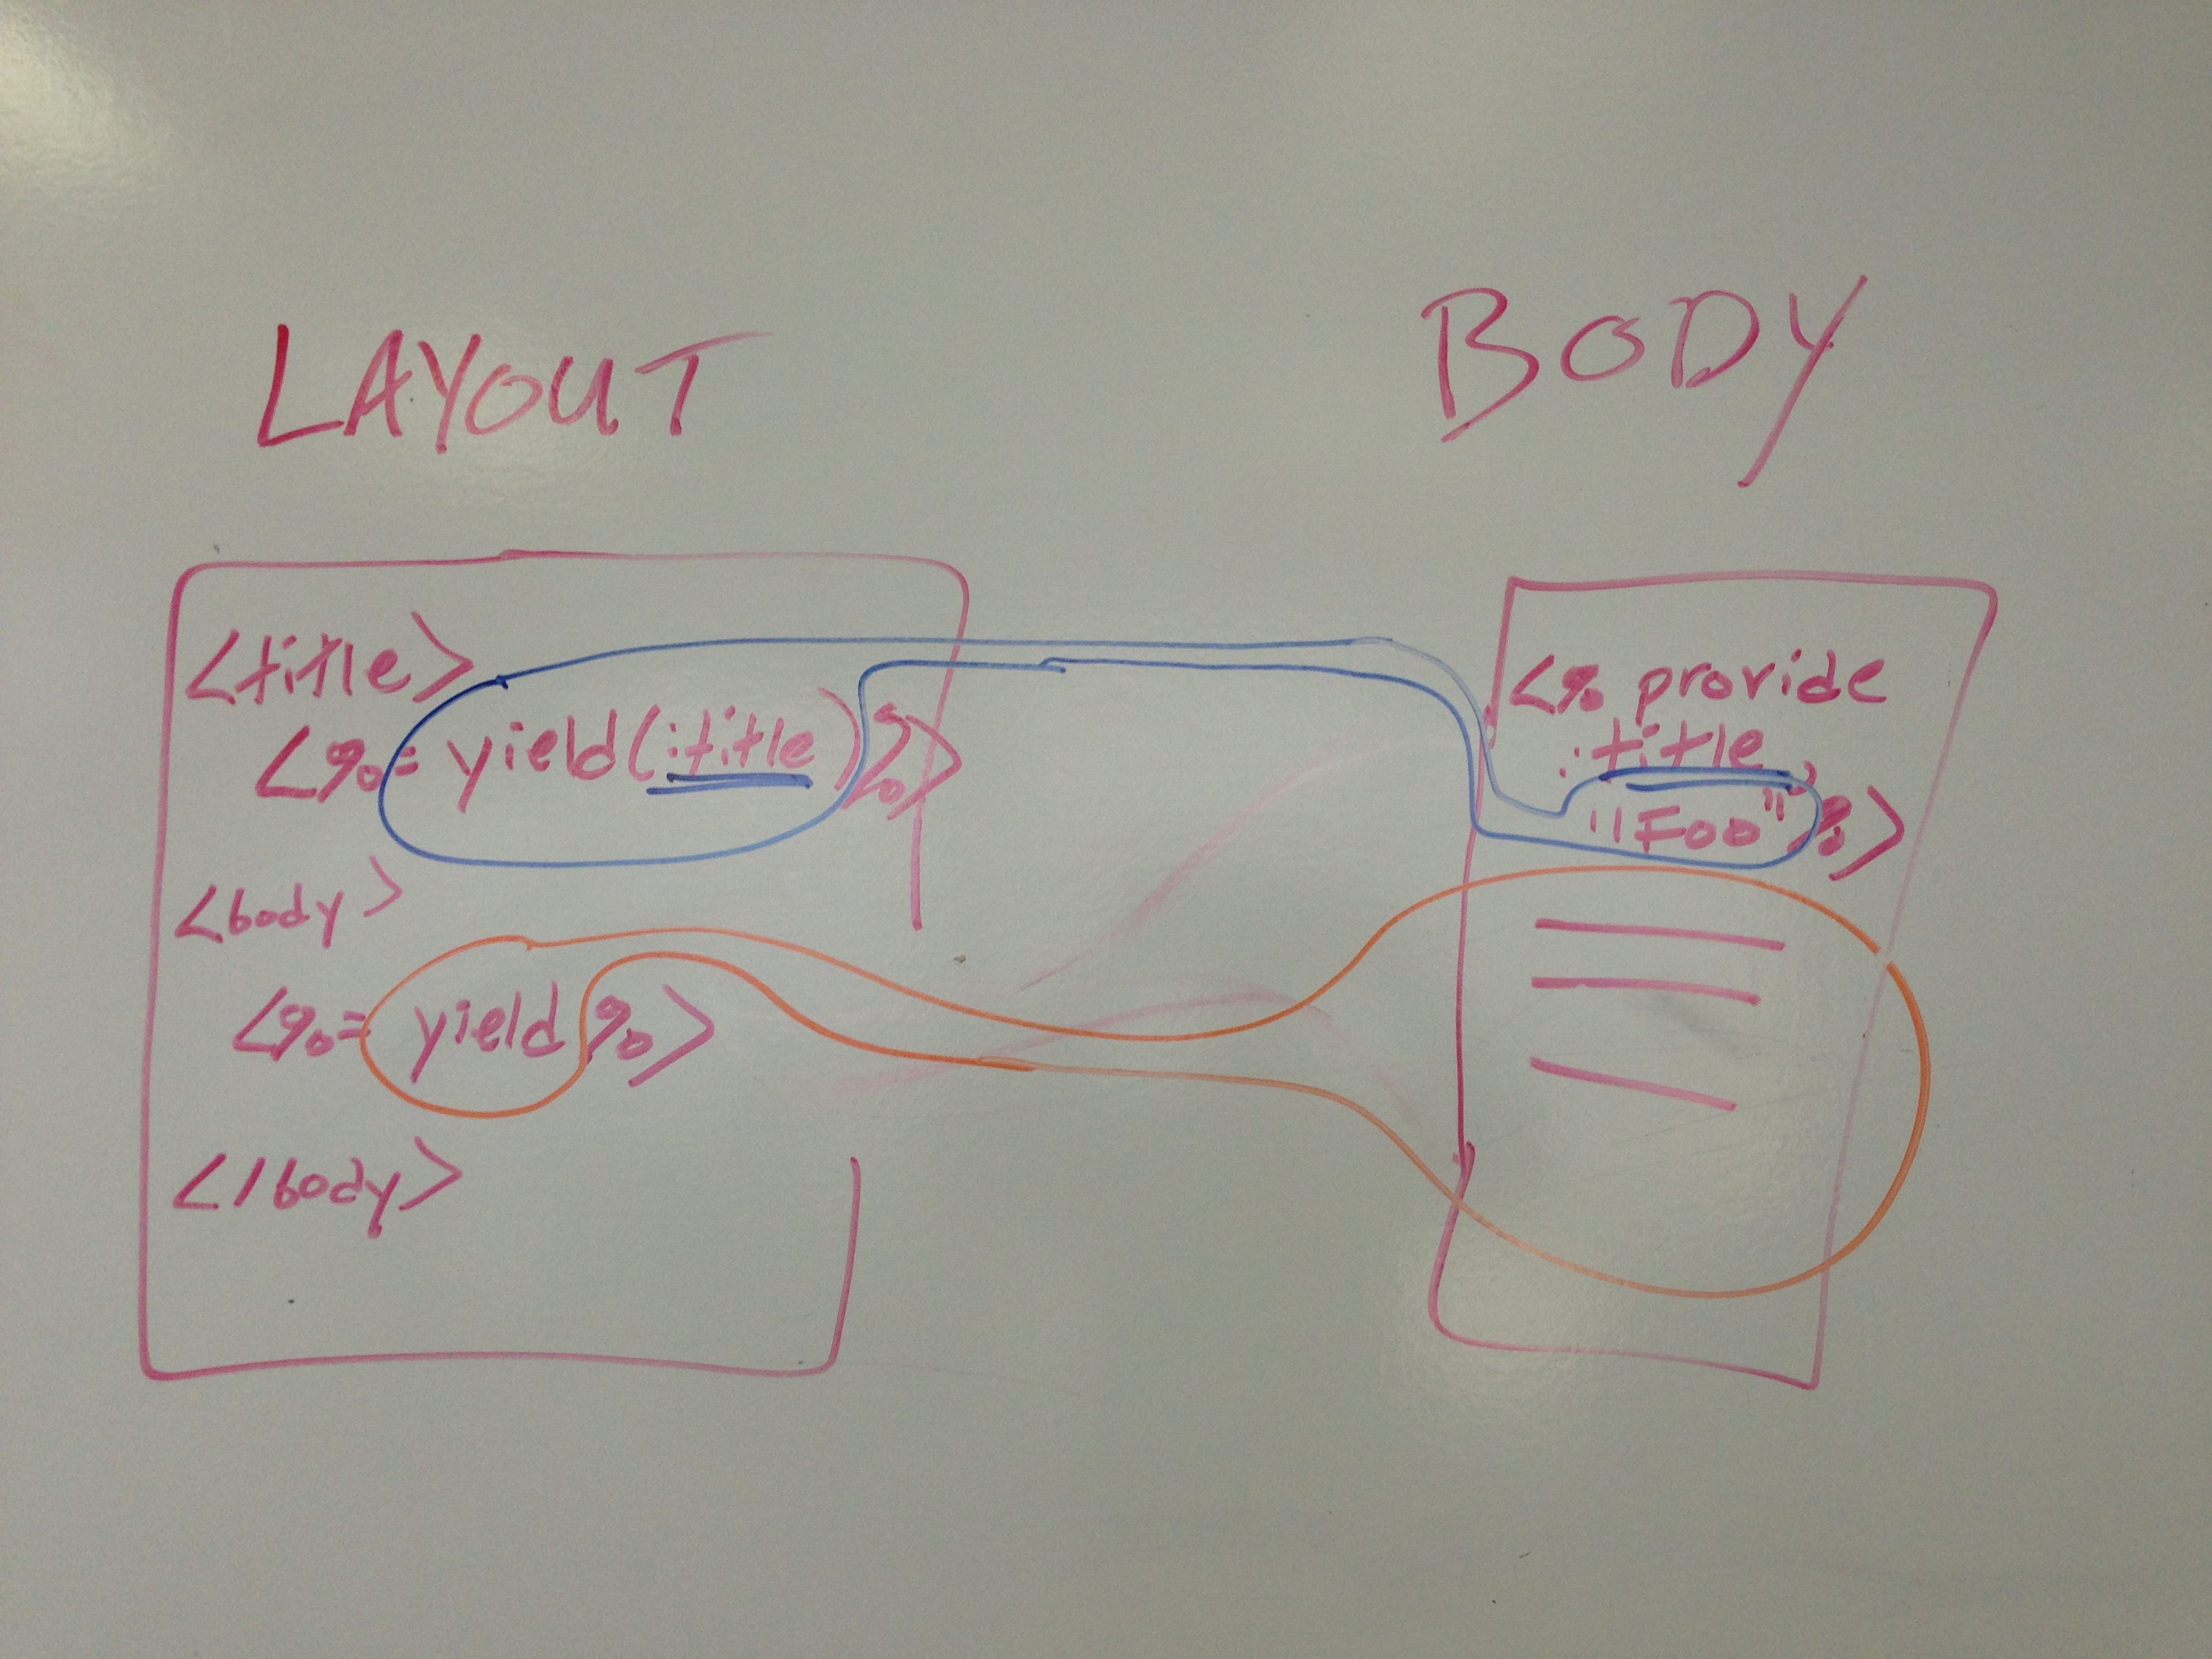 LAYOUT
<title>
<%= yield(:title)%>
<body>
<%= yield %>
</body>
BODY
<% provide
:title,
"Foo" %>